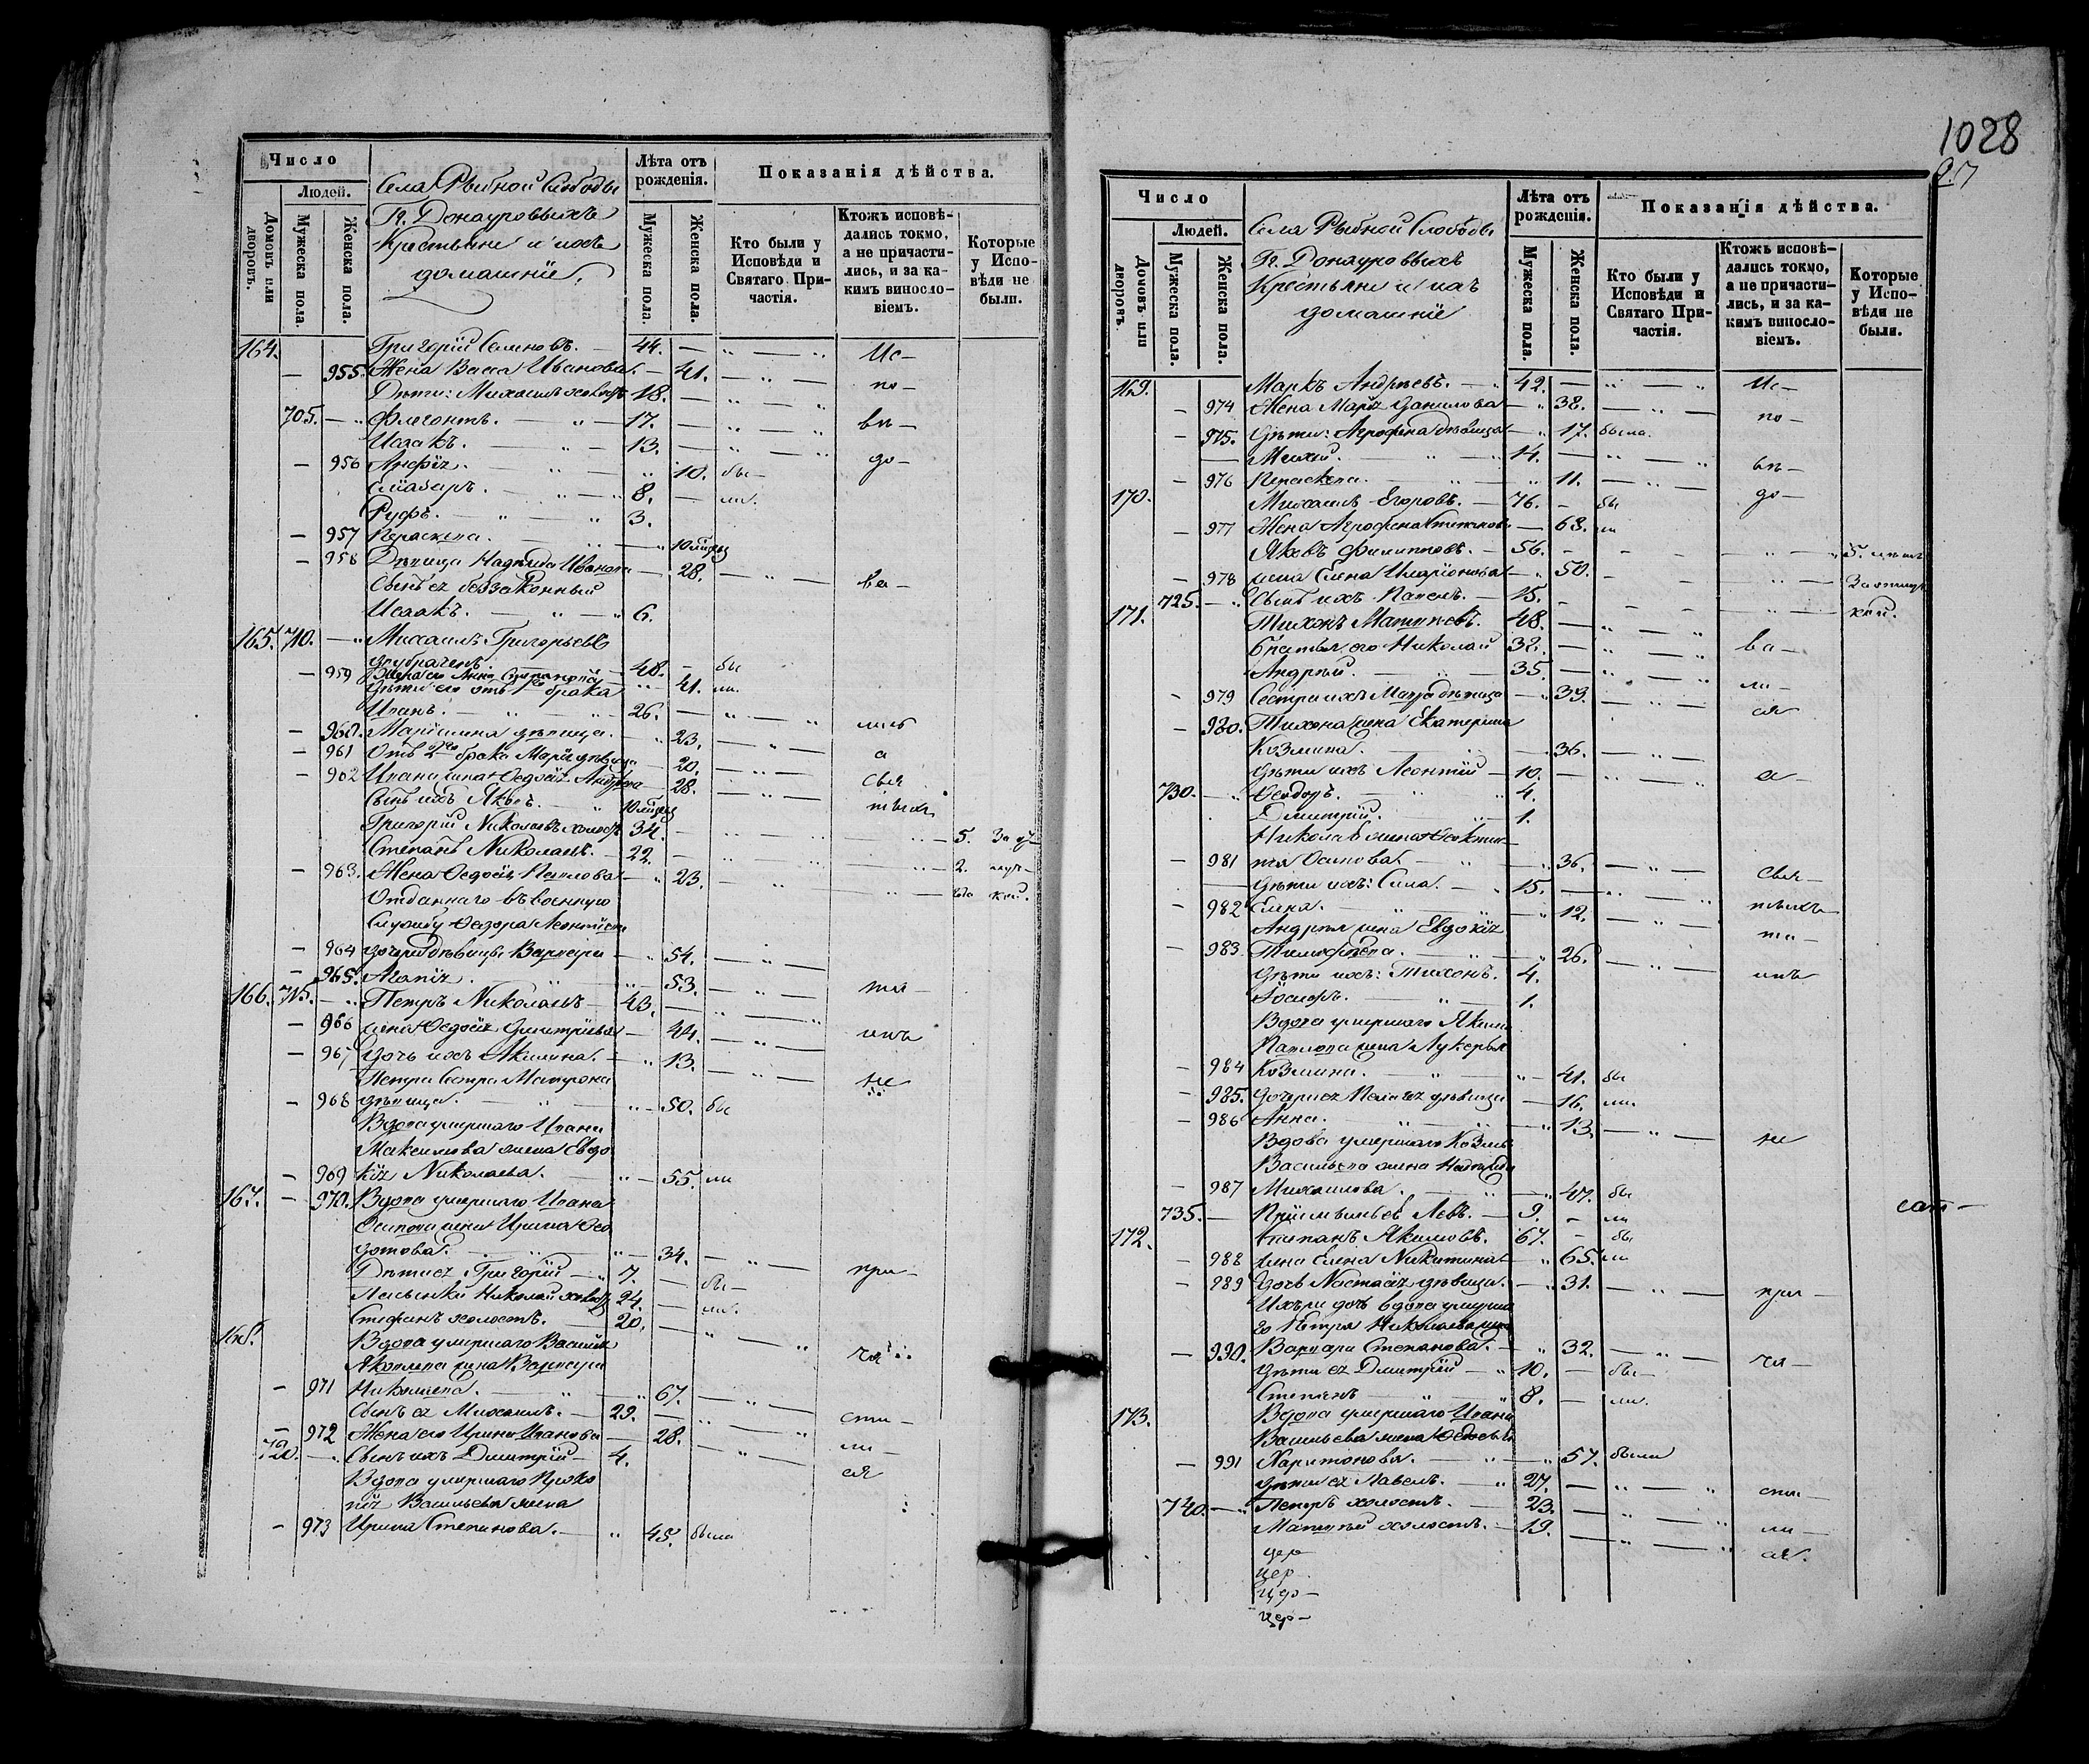 Число
Людей.
Домовъ или дворовъ.
Мужеска пола.
Женска пола.
Села Рыбной Слободы
Гг. Донауровыхъ
Крестьяне и ихъ
домашніе.
Лѣта отъ рожденія.
Мужеска пола.
Женска пола.
Показанія дѣйства.
Кто были у Исповѣди и Святаго Причастія.
Ктожъ исповѣдались токмо, а не причастились, и за какимъ винословіемъ.
Которые у Исповѣди не были.
164. Григорій Семеновъ. 44. Ис-
955. Жена Васса Иванова. 41.
Дѣти: Михаилъ холостъ 18. по-
705. Флегонтъ. 17. вѣ-
Исаакъ. 13.
956 Анфія. 10. бы- до-
Еліазаръ. 8. ли.
Руфъ. 3.
957 Параскева. 10 мѣсяц
958 Дѣвица Надежда Иванова 28.
Сынъ ея беззаконный ва-
Исаакъ. 6.
165. 710. Михаилъ Григорьевъ
двубраченъ. 48. бы
959 Жена его Анна Степанова 41. ли.
Дѣти его отъ 1го брака
Иванъ. 26.
960. Маріамна дѣвица. 23.
961 Отъ 2го брака Марія дѣвица 20. а
962 Ивана жена Ѳедосія Андреева 28. свя
Сынъ ихъ Яковъ. 10 мѣсяц тыхъ
Григорій Николаевъ холостъ 34. 5. За от
Степанъ Николаевъ. 22. 2. луч-
963. Жена Ѳедосія Павлова 23. года кой.
Отданнаго въ военную
Службу Ѳедора Леонтьева
964 дочери дѣвицы Варвара 54.
965. Агапія. 53. та-
166. 715. Петръ Николаевъ 43.
966 жена Ѳедосія Димитріева 44. инъ
967 Дочь ихъ Акилина. 13.
Петра Сестра Матрона не
968 дѣвица. 50. бы
Вдова умершаго Ивана
Максимова жена Евдо
969 кія Николаева. 55. ли
167. 970. Вдова умершаго Ивана
Осипова жена Ирина Ѳео
дотова. 34.
Дѣти ея: Григорій 7. бы- при-
Пасынки Николай холостъ 24. ли.
Стефанъ холостъ. 20.
168. Вдова умершаго Василія
Яковлева жена Варвара ча
971 Никитина. 67.
Сынъ ея Михаилъ. 29. сти-
972 Жена его Ирина Иванова 28. ли-
720. Сынъ ихъ Димитрій 4. ся
Вдова умершаго Проко
пія Васильева жена
973 Ирина Степанова. 45. была
1028
Число
Людей.
Домовъ или дворовъ.
Мужеска пола.
Женска пола.
Села Рыбной Слободы
Гг. Донауровыхъ
Крестьяне и ихъ
домашніе
Лѣта отъ рожденія.
Мужеска пола.
Женска пола.
Показанія дѣйства.
Кто были у Исповѣди и Святаго Причастія.
Ктожъ исповѣдались токмо, а не причастились, и за какимъ винословіемъ.
Которые у Исповѣди не были.
169. Маркъ Андреевъ. 42. Ис-
974 Жена Марія Данилова 38. по-
975. Дѣти: Агрофена дѣвица 17. была.
14. вѣ-
976 Параскева. 11.
170. Михаилъ Егоровъ. 76. бы до-
977 Жена Агрофена Степанова 68. ли
Яковъ Филипповъ. 56. 5. лѣтъ
978 жена Елена Иларіонова 50. За отлуч
725. Сынъ ихъ Павелъ. 15. кой.
171. Тихонъ Матвѣевъ. 48.
Братья его Николай 38. ва-
Андрей. 35. ли-
979 Сестра ихъ Мавра дѣвица 39. ся
980. Тихона жена Екатерина
Козмина. 36.
Дѣти ихъ Леонтій 10. а-
730. Ѳеодоръ. 4.
Димитрій. 1.
Николая жена Ѳеоктис-
981 та Осипова. 36. свя-
Дѣти ихъ: Сила. 15.
982 Елена. 12. тыхъ
Андрея жена Евдокія та-
983 Тимофеева. 26.
Дѣти ихъ: Тихонъ. 4. инъ
Іосифъ. 1.
Вдова умершаго Якима
Павлова жена Лукерья
984 Козмина. 41. бы
985. Дочери ея Пелагея дѣвица 16. ли.
986 Анна. 13. не
Вдова умершаго Козмы
Васильева жена Надежда
987 Михайлова. 47. бы
735. Пріемышъ ея Левъ. 9. ли
172. Степанъ Якимовъ. 67. бы
988 жена Елена Никитина 65. ли
989 Дочь Настасія дѣвица. 31. при-
Ихъ же дочь вдова умерша
го Петра Николаева жена
990. Варвара Степанова. 32. ча-
Дѣти ея Димитрій 10. бы-
Степанъ 8. ли.
173. Вдова умершаго Ивана
Васильева жена Ѳедосья
991 Харитонова. 57. были
Дѣти ея Павелъ. 27. сти-
740. Петръ холостъ. 23. ли-
Матвѣй холостъ. 19. ся.
цер
цер
цер-
цер-